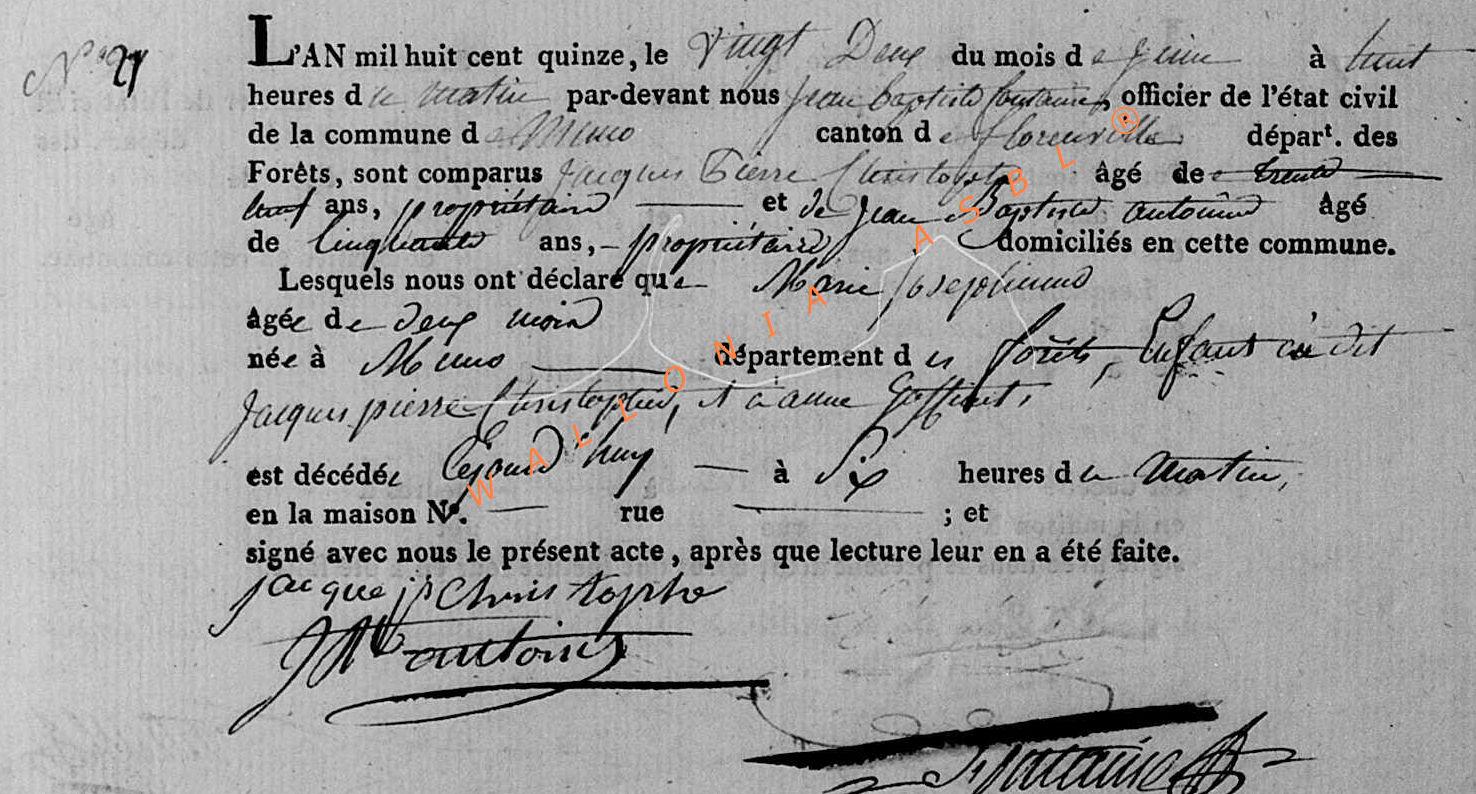 N.º 27
L'AN mil huit cent quinze, le vingt Deux du mois de Juin à huit
heures du matin par-devant nous Jean baptiste fontaine, officier de l'état civil
de la commune de Muno canton de florenville départ. des
Forêts, sont comparus Jacques Pierre Christophe âgé de trente
neuf ans, propriétaire et de Jean Baptiste antoine âgé
de Cinquante ans, propriétaire, domiciliés en cette commune.
Lesquels nous ont déclaré que Marie Josephinne
âgée de deux mois
née à Muno département des forêts, Enfant du dit
Jacques pierre Christophe, et a anne Goffinet,
est décédée Cejourd'huy à Six heures du Matin,
en la maison N°. rue ; et
signé avec nous le présent acte, après que lecture leur en a été faite.
jacque jp christophe
JB antoine
fontaine
WALLONIA ASBL ®